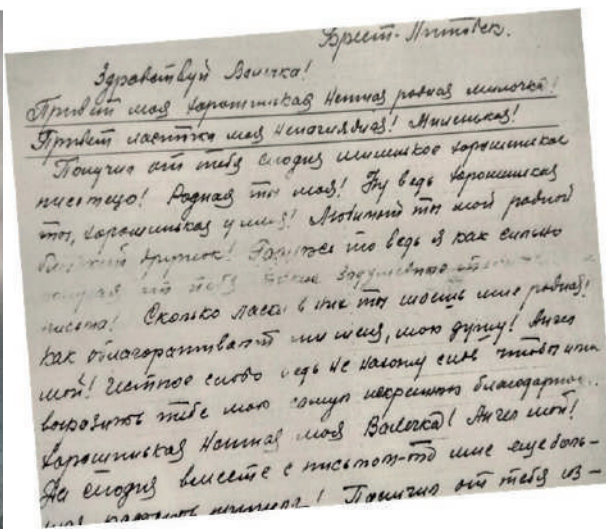 Брест-Литовск.
Здравствуй Валечка!
Привет моя хорошинькая нежная родная милочка!
Привет ласточка моя ненаглядная! Миленькая!
Получил от тебя сегодня миленькое хорошинькое
писмецо! Родная ты моя! Ну ведь хорошинькая
ты, хорошинькая у меня! Любимый ты мой родной
дружок! ведь я как сильно
от тебя
письма! Сколько ласки в них ты шлешь мне родная!
Как облагораживают они меня, мою душу! Ангел
мой! Честное слово ведь не нахожу слов чтобы ими
выразить тебе мою самую искреннюю
хорошинькая нежная моя Валечка! Ангел мой!
Да сегодня вместе с письмом-то мне еще боль-
! Получил от тебя из-